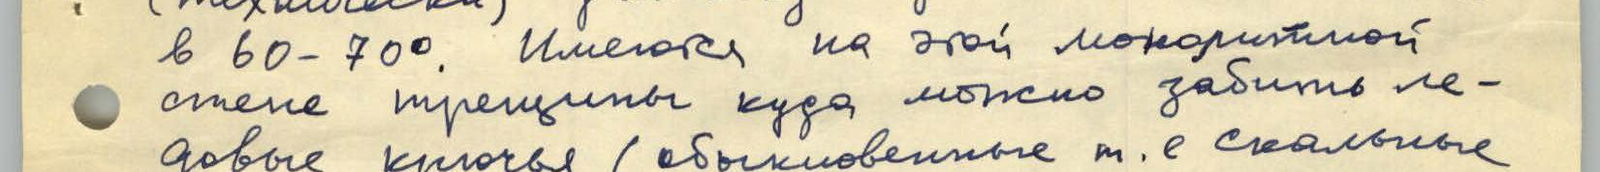 (технически)
в 60-70°. Имеются на этой монолитной
стене трещины куда можно забить ле-
довые крючья (обыкновенные т. е скальные